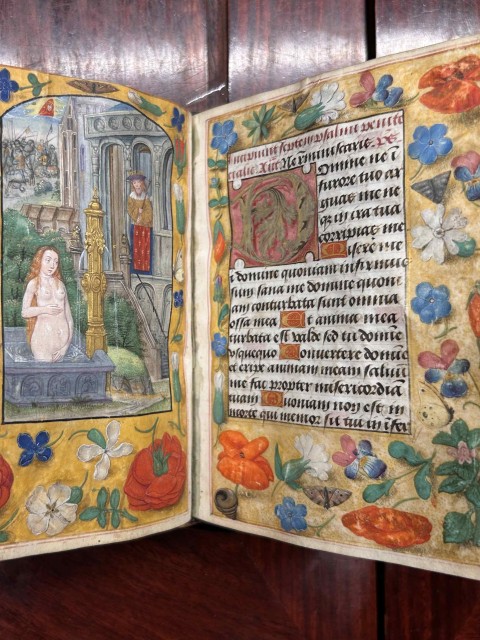 Incipiunt septem psalmi penite
ciales. Ant. Ne reminiscaris. Ps.
Domine ne i
furore tuo ar
guas me ne
qz in ira tua
corripias me
Misere me
i domine quoniam infirmus
sum sana me domine quoni
am conturbata sunt omnia
ossa mea Et anima mea
turbata est valde sed tu domine
usquequo Convertere domine
et eripe animam meam salvū
me fac propter misericordiā
tuam Quoniam non est in
morte qui memor sit tui in ifer